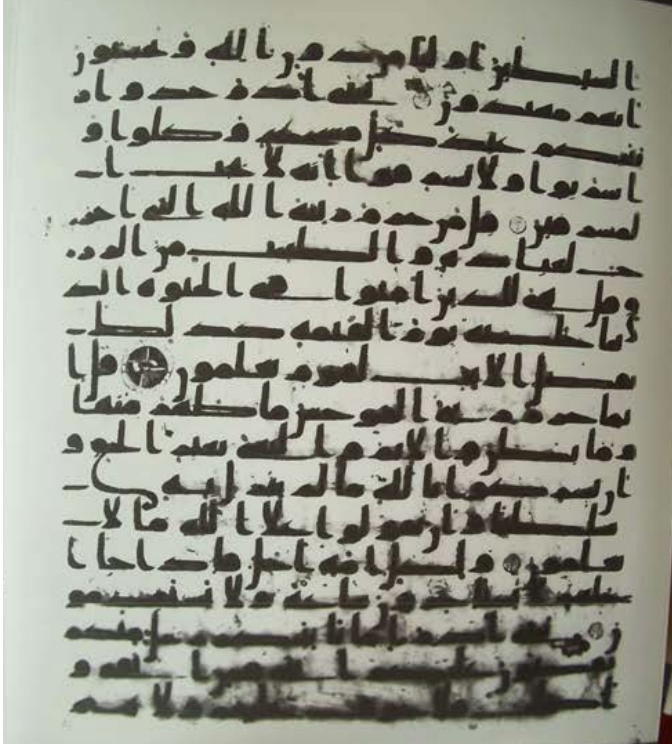 الشيطين اوليا من دون الله و يحسبون
انهم مهتدون يبني ادم خذوا ز
ينتكم عند كل مسجد و كلوا و
اشربوا ولا تسرفوا انه لا يحب ا
لمسرفين قل من حرم زينه الله التي اخر
ج لعباده و الطيبت من الرز
ق قل هي للذين امنوا في الحيوه الد
نيا خلصه يوم القيمه كذلك
نفصل الايت لقوم يعلمون قل ا
نما حرم ربي الفوحش ما ظهر منها
و ما بطن و الاثم و البغي بغير الحق و
ان تشركوا بالله ما لم ينزل به
سلطنا و ان تقولوا على الله ما لا
تعلمون و لكل امه اجل فاذا جا ا
جلهم لا يستاخرون ساعه و لا يستقدمو
ن يبني ادم اما ياتينكم رسل منكم
يقصون عليكم ايتي فمن اتقى و
اصلح فلا خوف عليهم و لا هم